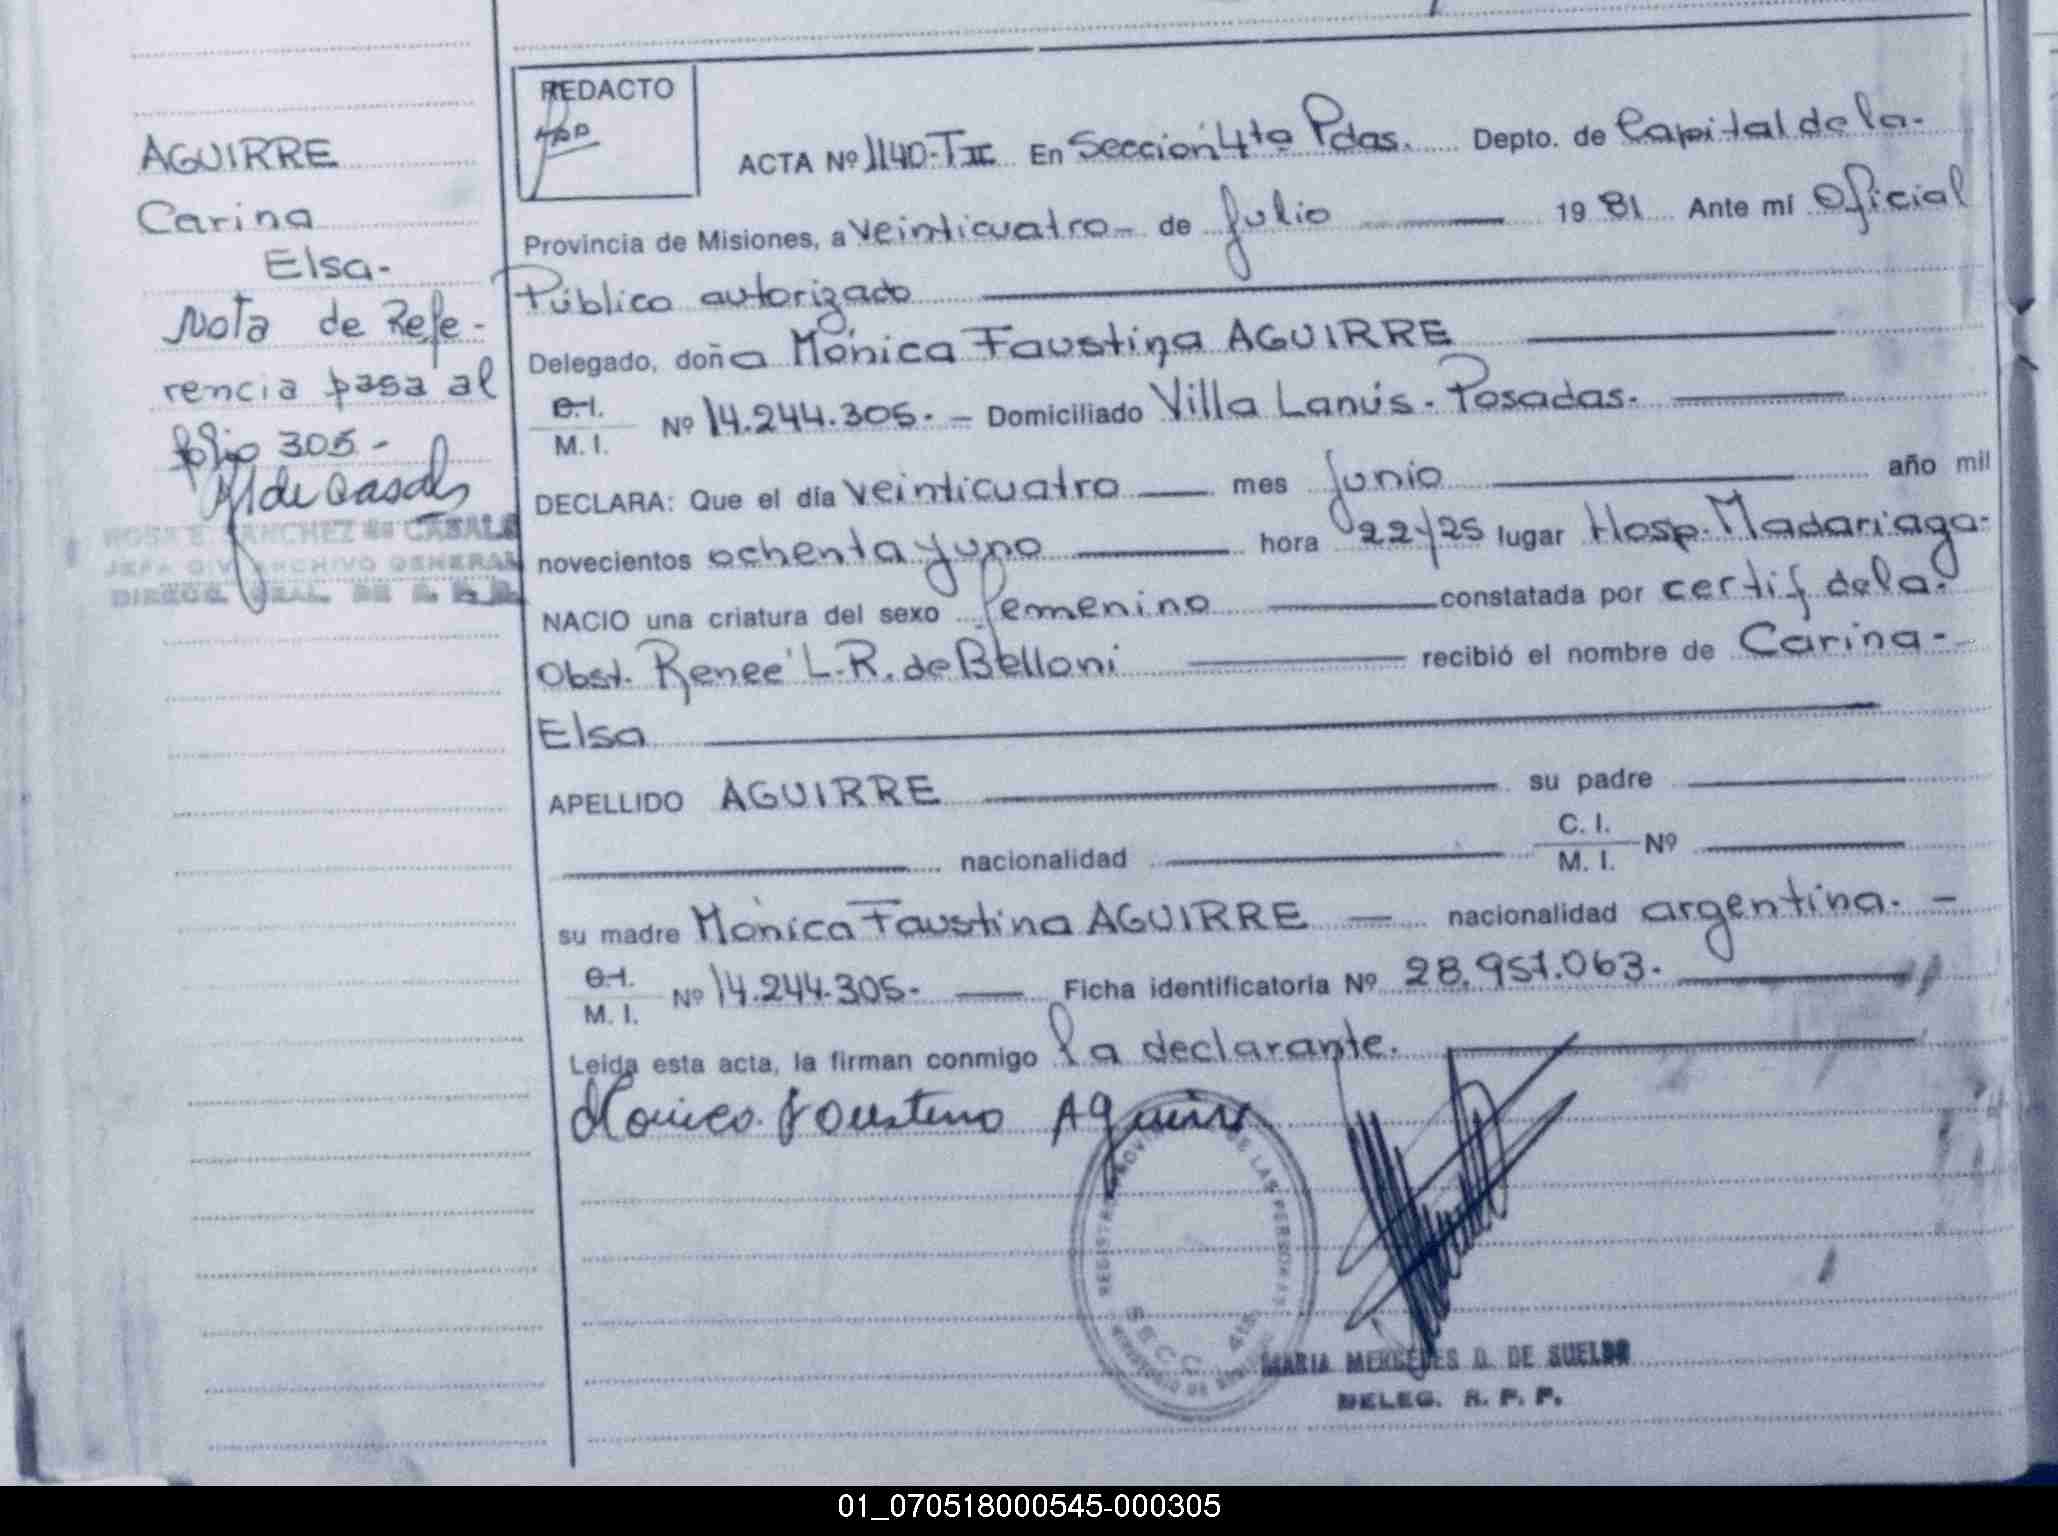 AGUIRRE
Carina
Elsa-
Nota de Refe-
rencia pasa al
folio 305-
ROSA E. SANCHEZ de CASALS
JEFA DIV. ARCHIVO GENERAL
DIRECC. GRAL. DE R. P. P.
REDACTO
ACTA Nº 1140-TII En Sección 4ta Pdas. Depto. de Capital de la-
Provincia de Misiones, a veinticuatro- de Julio 19 81 Ante mí Oficial
Público autorizado
Delegado, doña Mónica Faustina AGUIRRE
C.I. M. I. Nº 14.244.305.- Domiciliado Villa Lanús- Posadas.
DECLARA: Que el día veinticuatro mes Junio año mil
novecientos ochenta y uno hora 22/25 lugar Hosp. Madariaga-
NACIO una criatura del sexo femenino constatada por certif de la.
Obst. Renee L.R. de Belloni recibió el nombre de Carina-
Elsa
APELLIDO AGUIRRE su padre
nacionalidad C. I. M. I. Nº
su madre Mónica Faustina AGUIRRE nacionalidad argentina. -
C.I. M. I. Nº 14.244.305- Ficha identificatoria Nº 28.951.063.
Leída esta acta, la firman conmigo la declarante.
Monica Faustina Aguirre
REGISTRO PROVINCIAL DE LAS PERSONAS
SECC. 4ta
MARIA MERCEDES D. DE SUELDO
DELEG. R. P. P.
01_070518000545-000305